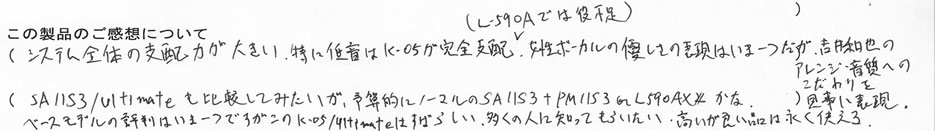 (L-590Aでは役不足)
この製品のご感想について )
( システム全体の支配力が大きい、特に低音はK-05が完全支配、女性ボーカルの優しさの表現はいま一つだが、吉井和也の
アレンジ・音質への
こだわりを
見事に表現。
( SA11S3/ultimateも比較してみたいが、予算的にノーマルのSA11S3+PM11S3 or L590AXⅡかな。 )
ベースモデルの評判はいま一つですがこのK-05/ultimateはすばらしい、多くの人に知ってもらいたい、高いが良い品は永く使える。